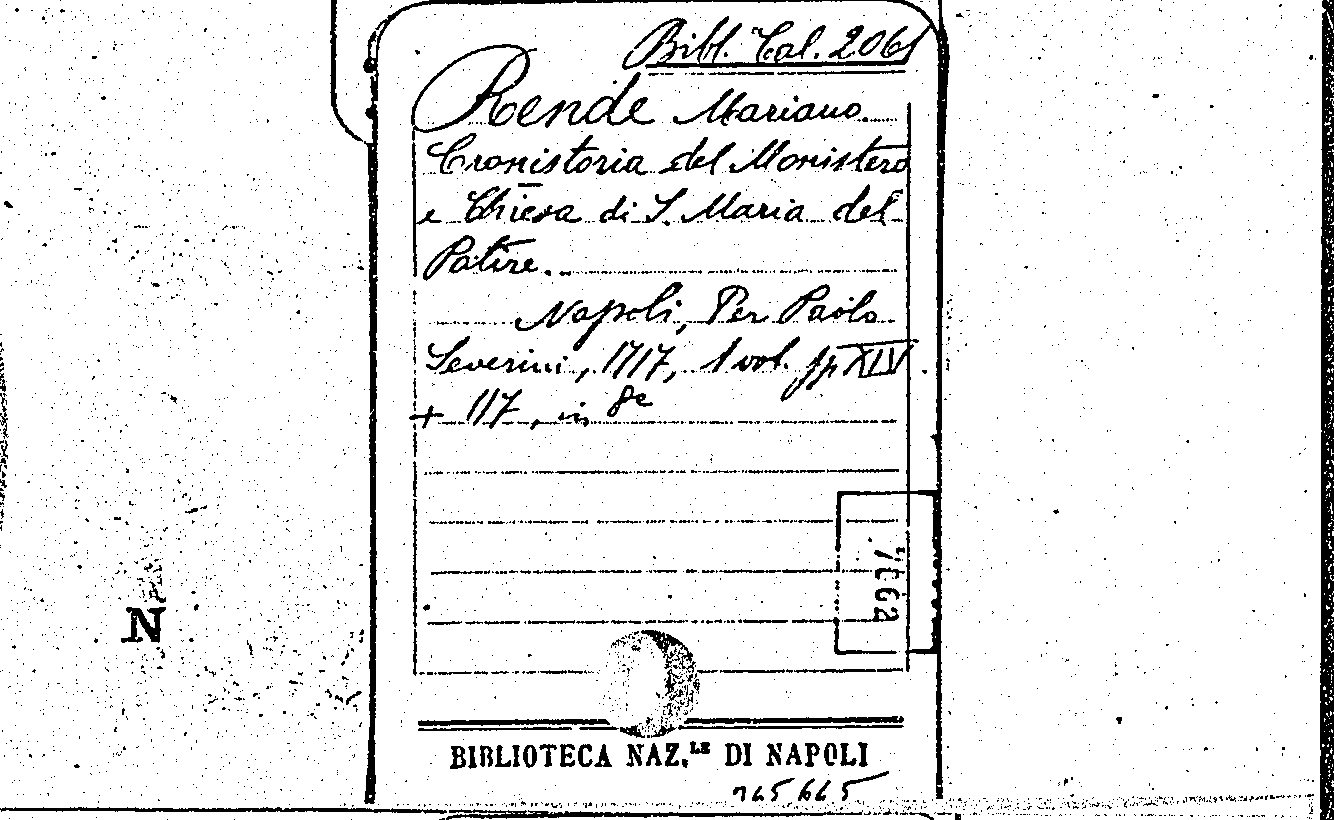 Bibl. Cal. 2061
Rende Mariano.
Cronistoria del Monistero
e Chiesa di S. Maria del
Patire.
Napoli, Per Paolo
Severini, 1717, 1 vol. pp XIV.
+ 117, in 8º
7062
N
BIBLIOTECA NAZ.LE DI NAPOLI
765665